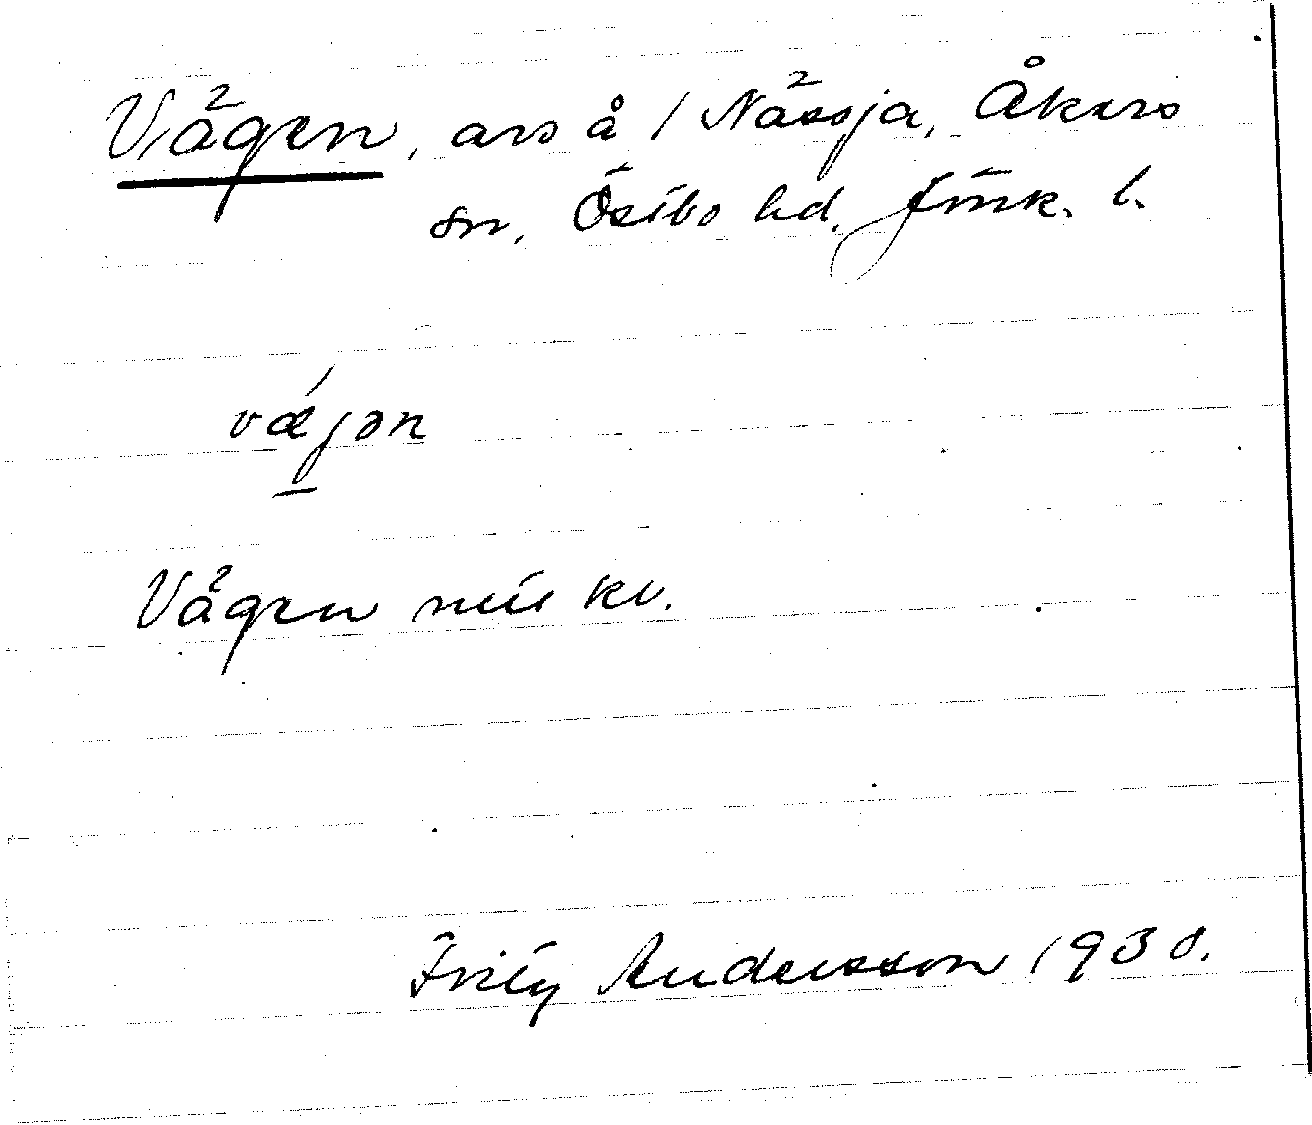 Vägen, avs å 1 Nässja, Åkers
sn, Östbo hd, Jönk. l.
væ̀jən
Vägen nut kv.
Frity Andersson 1930.